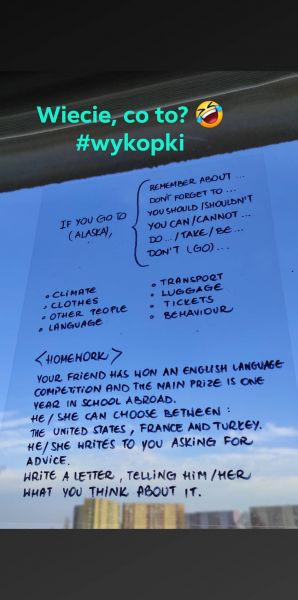 Wiecie, co to? 🤣
#wykopki
IF YOU GO TO
(ALASKA),
REMEMBER ABOUT ...
DON'T FORGET TO ...
YOU SHOULD / SHOULDN'T
YOU CAN / CANNOT ...
DO ... / TAKE / BE ...
DON'T (GO) ...
• CLIMATE
• CLOTHES
• OTHER PEOPLE
• LANGUAGE
• TRANSPORT
• LUGGAGE
• TICKETS
• BEHAVIOUR
<HOMEWORK>
YOUR FRIEND HAS WON AN ENGLISH LANGUAGE
COMPETITION AND THE MAIN PRIZE IS ONE
YEAR IN SCHOOL ABROAD.
HE / SHE CAN CHOOSE BETWEEN :
THE UNITED STATES , FRANCE AND TURKEY.
HE/SHE WRITES TO YOU ASKING FOR
ADVICE.
WRITE A LETTER , TELLING HIM / HER
WHAT YOU THINK ABOUT IT.